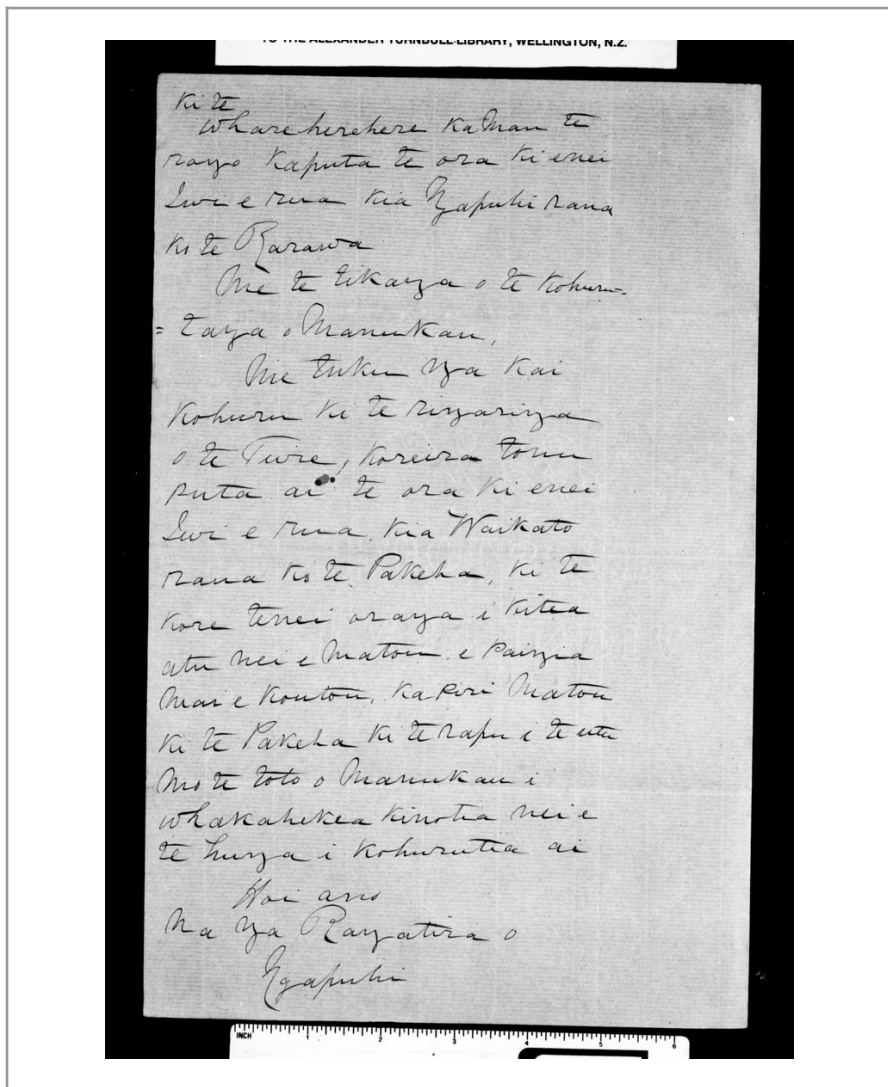 TO THE ALEXANDER TURNBULL LIBRARY, WELLINGTON, N.Z.
ki te
whareherehere ka Mau te
rongo kaputa te ora ki enei
Iwi e rua kia Ngapuhi raua
ko te Rarawa
Me te tikanga o te kohuru-
= tanga o Manukau,
Me tuku nga kai
kohuru ki te ringaringa
o te Ture, koreira tonu
puta ai te ora ki enei
Iwi e rua, kia Waikato
raua ko te Pakeha, ki te
kore tenei oranga i kitea
atu nei e Matou e paingia
Mai e koutou, ka piri Matou
ki te Pakeha ki te rapu i te utu
Mo te toto o Manukau i
whakahekea kinotia nei e
te hunga i kohurutia ai
Hoi ano
Na nga Rangatira o
Ngapuhi
INCH 1 2 3 4 5 6